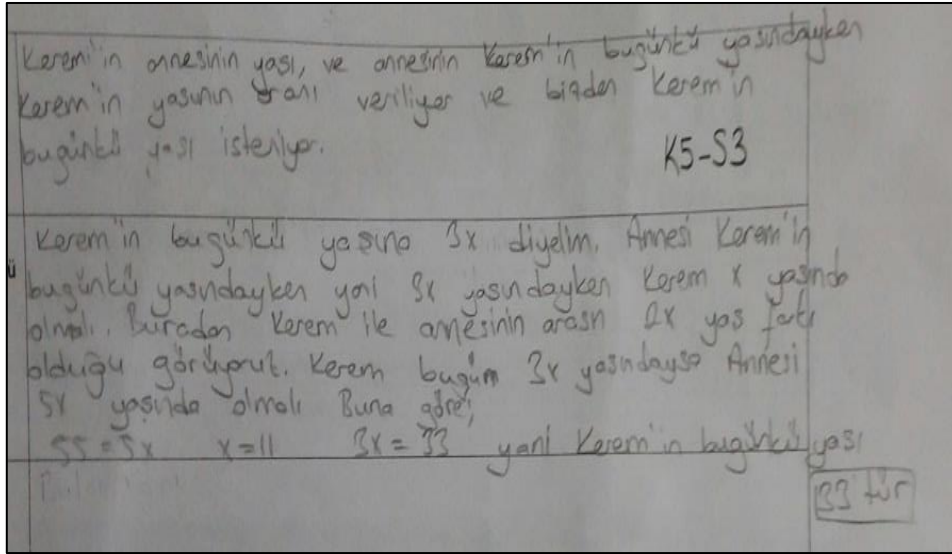 Kerem'in annesinin yaşı, ve annesinin Kerem'in bugünkü yaşındayken
Kerem'in yaşının oranı veriliyor ve bizden Kerem'in
bugünkü yaşı isteniyor.
K5-S3
Kerem'in bugünkü yaşına 3x diyelim. Annesi Kerem'in
ü
bugünkü yaşındayken yani 3x yaşındayken Kerem x yaşında
olmalı. Buradan Kerem ile annesinin arasın 2x yaş farkı
olduğu görüyoruz. Kerem bugün 3x yaşındaysa Annesi
5x yaşında olmalı Buna göre;
55=5x x=11 3x=33 yani Kerem'in bugünkü yaşı
33 tür